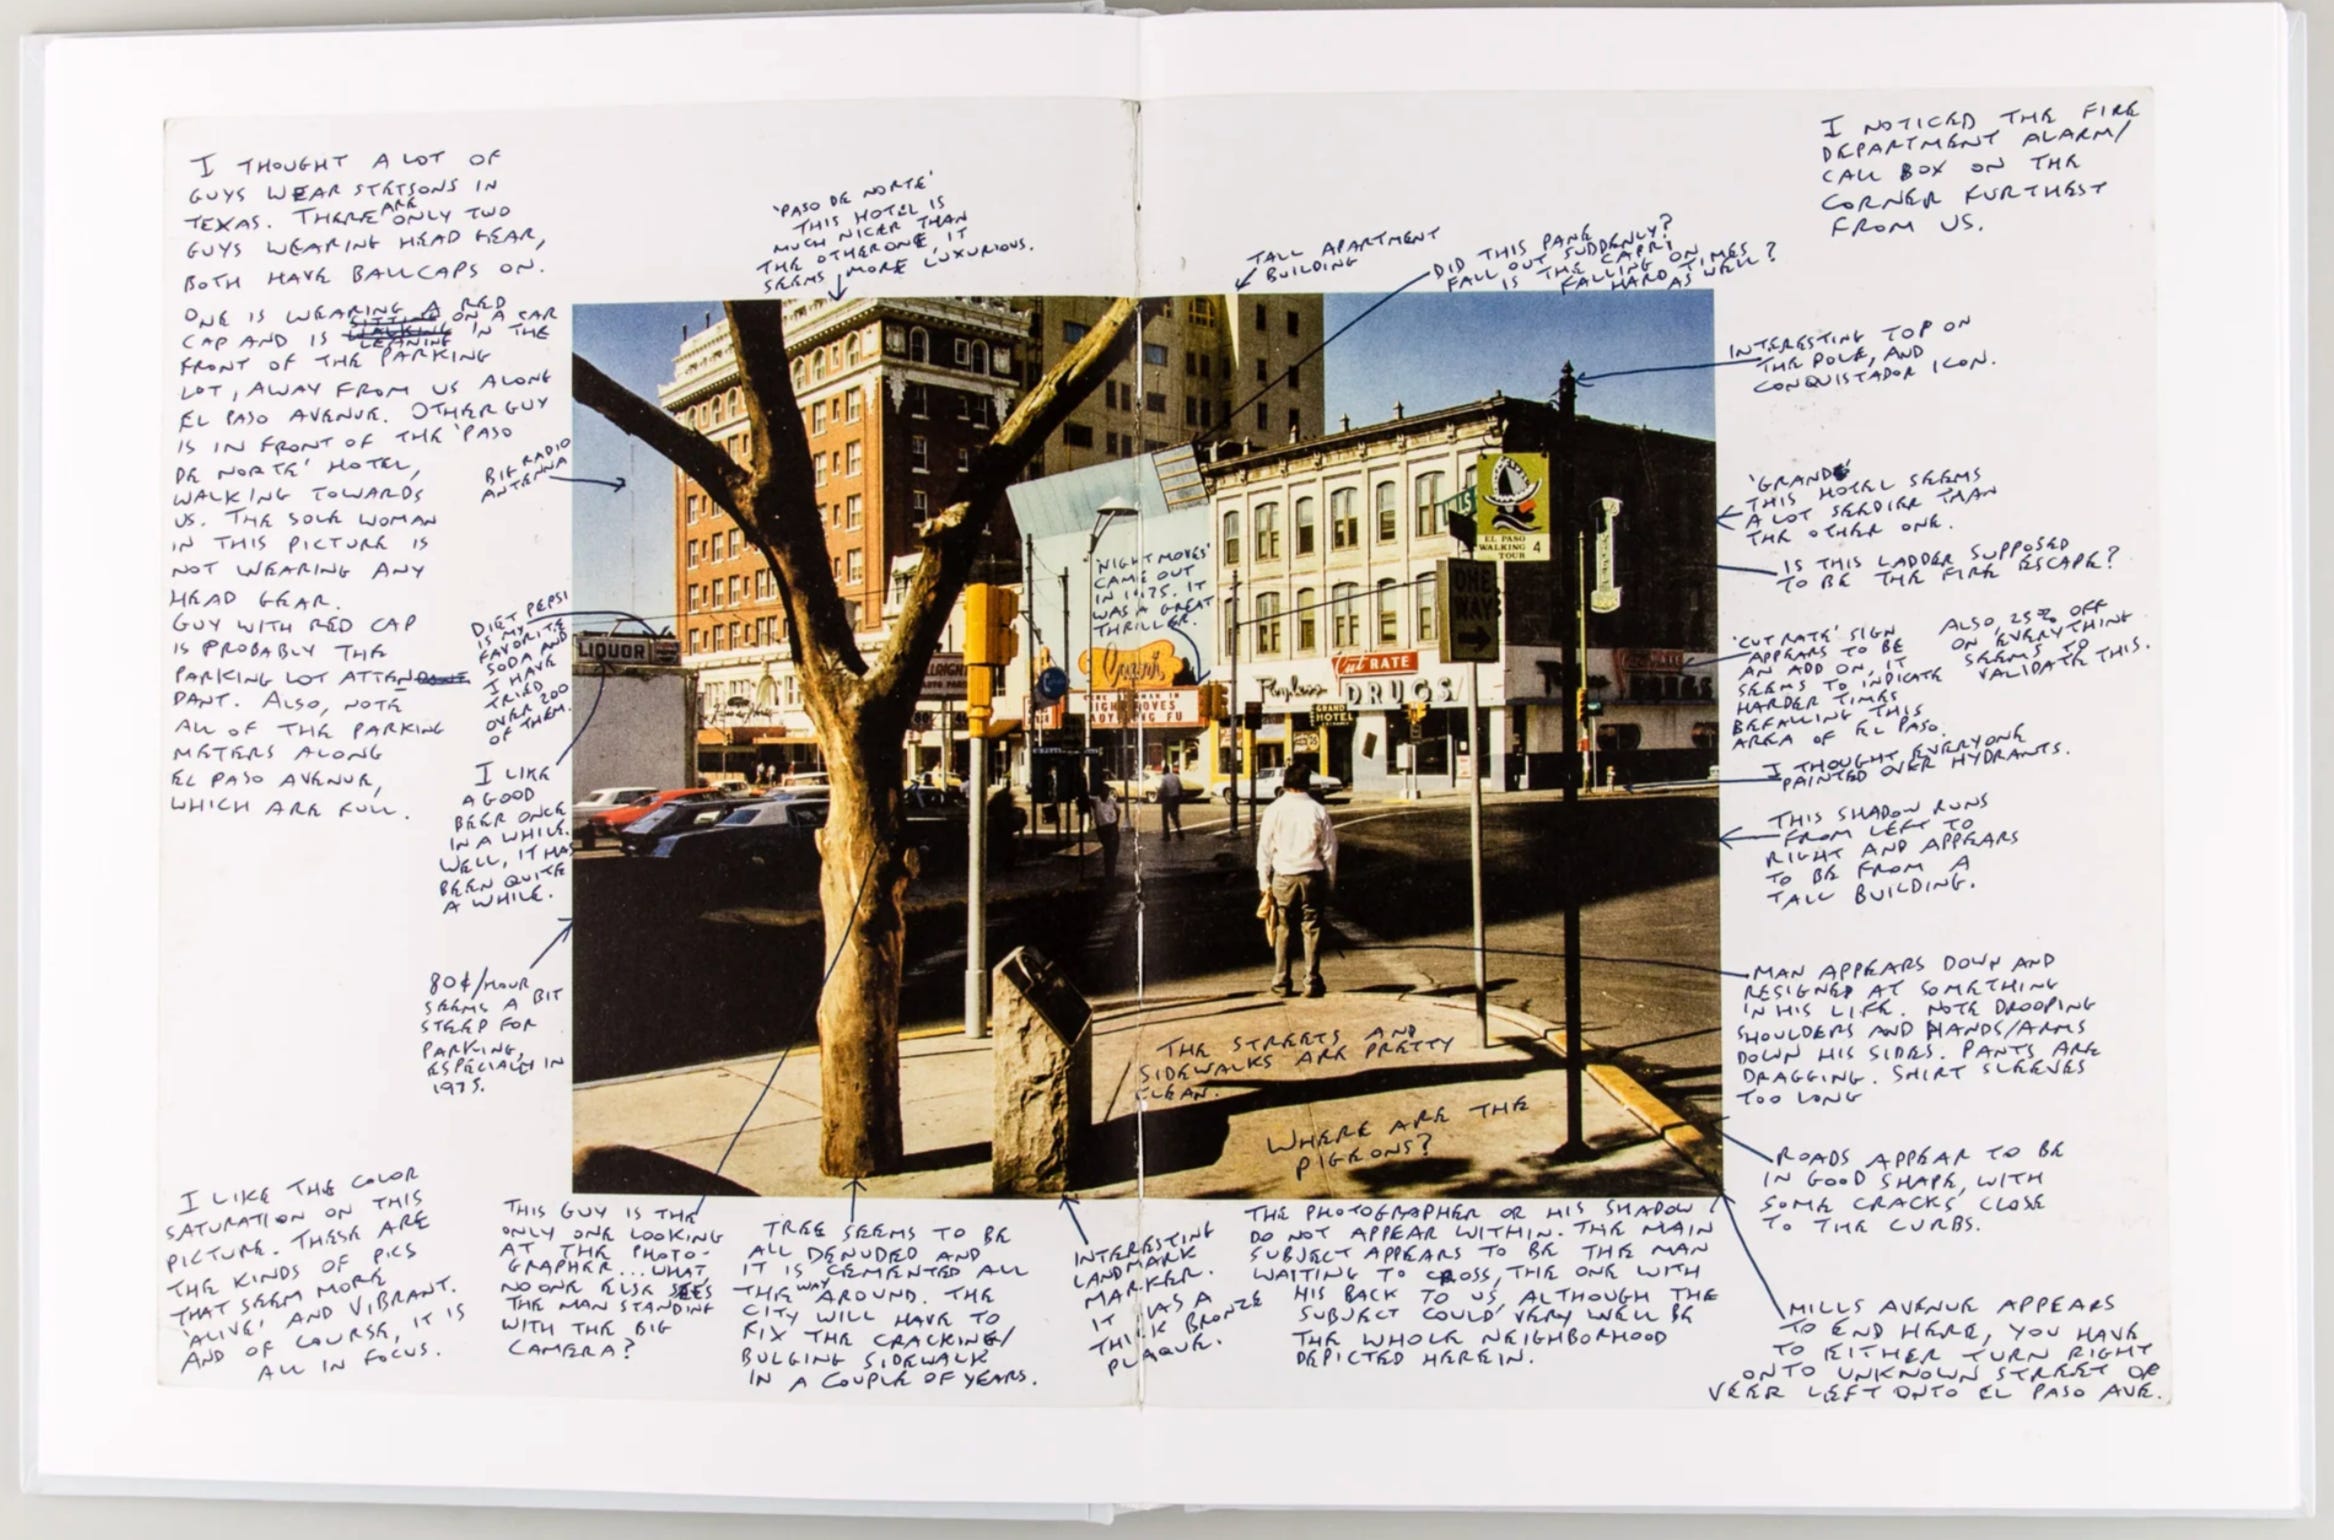 I THOUGHT A LOT OF
GUYS WEAR STETSONS IN
TEXAS. THERE ARE ONLY TWO
GUYS WEARING HEAD GEAR,
BOTH HAVE BALLCAPS ON.
ONE IS WEARING A RED
CAP AND IS LEANING ON A CAR IN THE
FRONT OF THE PARKING
LOT, AWAY FROM US ALONG
EL PASO AVENUE. OTHER GUY
IS IN FRONT OF THE 'PASO
DE NORTE' HOTEL,
WALKING TOWARDS
US. THE SOLE WOMAN
IN THIS PICTURE IS
NOT WEARING ANY
HEAD GEAR.
GUY WITH RED CAP
IS PROBABLY THE
PARKING LOT ATTEN
DANT. ALSO, NOTE
ALL OF THE PARKING
METERS ALONG
EL PASO AVENUE,
WHICH ARE FULL.
'PASO DE NORTE'
THIS HOTEL IS
MUCH NICER THAN
THE OTHER ONE, IT
SEEMS MORE LUXURIOUS.
TALL APARTMENT
BUILDING
DID THIS PANE
FALL OUT SUDDENLY?
IS THE CAPRI
FALLING ON
HARD TIMES
AS WELL?
I NOTICED THE FIRE
DEPARTMENT ALARM/
CALL BOX ON THE
CORNER FURTHEST
FROM US.
INTERESTING TOP ON
THE POLE, AND
CONQUISTADOR ICON.
BIG RADIO
ANTENNA
'GRANDE'
THIS HOTEL SEEMS
A LOT SEEDIER THAN
THE OTHER ONE.
IS THIS LADDER SUPPOSED
TO BE THE FIRE ESCAPE?
'NIGHT MOVES'
CAME OUT
IN 1975. IT
WAS A GREAT
THRILLER.
EL PASO
WALKING
TOUR 4
ONE
WAY
HOTEL
DIET PEPSI
IS MY
FAVORITE
SODA AND
I HAVE
TRIED
OVER 200
OF THEM.
LIQUOR
Capri
NIGHT MOVES
Payless
DRUGS
Cut RATE
GRAND
HOTEL
'CUT RATE' SIGN
APPEARS TO BE
AN ADD ON, IT
SEEMS TO INDICATE
HARDER TIMES
BEFALLING THIS
AREA OF EL PASO.
ALSO, 25% OFF
ON EVERYTHING
SEEMS TO
VALIDATE THIS.
I THOUGHT EVERYONE
PAINTED OVER HYDRANTS.
I LIKE
A GOOD
BEER ONCE
IN A WHILE.
WELL, IT HAS
BEEN QUITE
A WHILE.
THIS SHADOW RUNS
FROM LEFT TO
RIGHT AND APPEARS
TO BE FROM A
TALL BUILDING.
80¢/HOUR
SEEMS A BIT
STEEP FOR
PARKING,
ESPECIALLY IN
1975.
MAN APPEARS DOWN AND
RESIGNED AT SOMETHING
IN HIS LIFE. NOTE DROOPING
SHOULDERS AND HANDS/ARMS
DOWN HIS SIDES. PANTS ARE
DRAGGING. SHIRT SLEEVES
TOO LONG
THE STREETS AND
SIDEWALKS ARE PRETTY
CLEAN.
WHERE ARE THE
PIGEONS?
ROADS APPEAR TO BE
IN GOOD SHAPE, WITH
SOME CRACKS CLOSE
TO THE CURBS.
I LIKE THE COLOR
SATURATION ON THIS
PICTURE. THESE ARE
THE KINDS OF PICS
THAT SEEM MORE
'ALIVE' AND VIBRANT.
AND OF COURSE, IT IS
ALL IN FOCUS.
THIS GUY IS THE
ONLY ONE LOOKING
AT THE PHOTO-
GRAPHER... WHAT,
NO ONE ELSE SEES
THE MAN STANDING
WITH THE BIG
CAMERA?
TREE SEEMS TO BE
ALL DENUDED AND
IT IS CEMENTED ALL
THE WAY AROUND. THE
CITY WILL HAVE TO
FIX THE CRACKING/
BULGING SIDEWALK
IN A COUPLE OF YEARS.
INTERESTING
LANDMARK
MARKER.
IT HAS A
THICK BRONZE
PLAQUE.
THE PHOTOGRAPHER OR HIS SHADOW
DO NOT APPEAR WITHIN. THE MAIN
SUBJECT APPEARS TO BE THE MAN
WAITING TO CROSS, THE ONE WITH
HIS BACK TO US, ALTHOUGH THE
SUBJECT COULD VERY WELL BE
THE WHOLE NEIGHBORHOOD
DEPICTED HEREIN.
MILLS AVENUE APPEARS
TO END HERE, YOU HAVE
TO EITHER TURN RIGHT
ONTO UNKNOWN STREET OR
VEER LEFT ONTO EL PASO AVE.